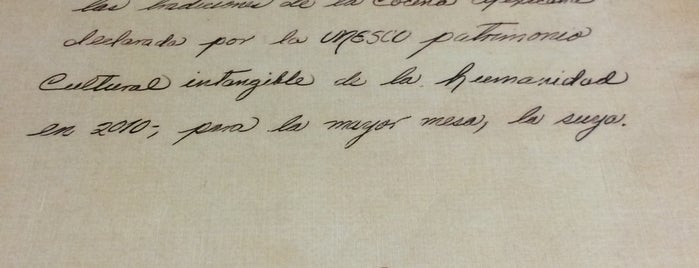 las tradiciones de la cocina Mexicana
declarada por la UNESCO patrimonio
Cultural intangible de la humanidad
en 2010-, para la mayor mesa, la suya.